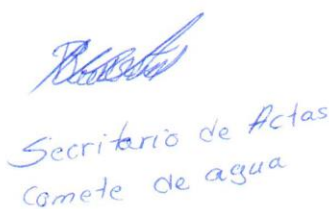 Secritario de Actas
Comete de agua